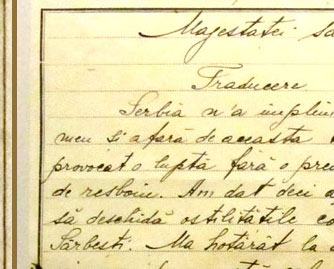 Majestatei
Traducere
Serbia n'a
meu și afară de aceasta
provocat o luptă fără o
de resboiu. Am dat deci
să deschidă ostilitățile
Sârbești. Ma hotărât la